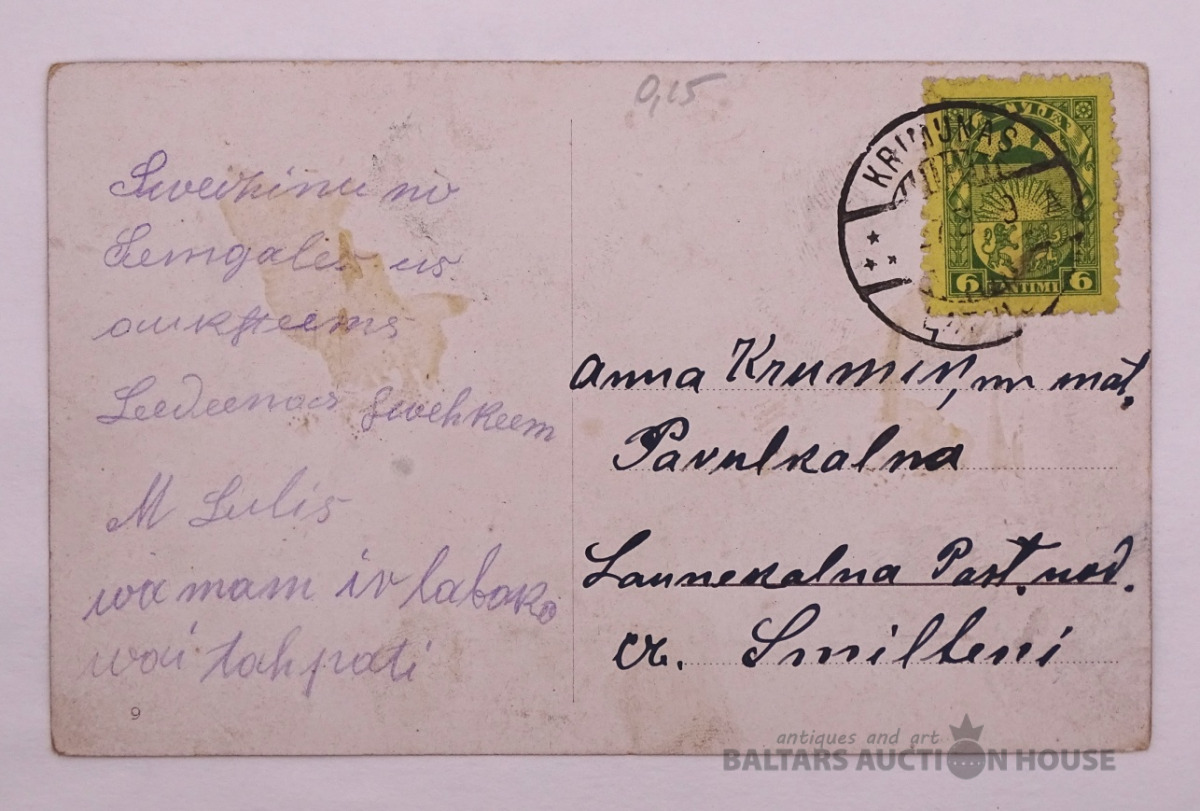 0,15
KRIMUNAS
LATVIJA
6 SANTIMI 6
Sweizinu no
Semgales us
auksteems
Leedeenas swehkeem
M Lulis
wa mam ir labaka
wai tahpati
9
Anna Krumin, mat,
Pavulkalna
Launekalna Past. nod.
cr. Smilteni
antiques and art
BALTARS AUCTION HOUSE